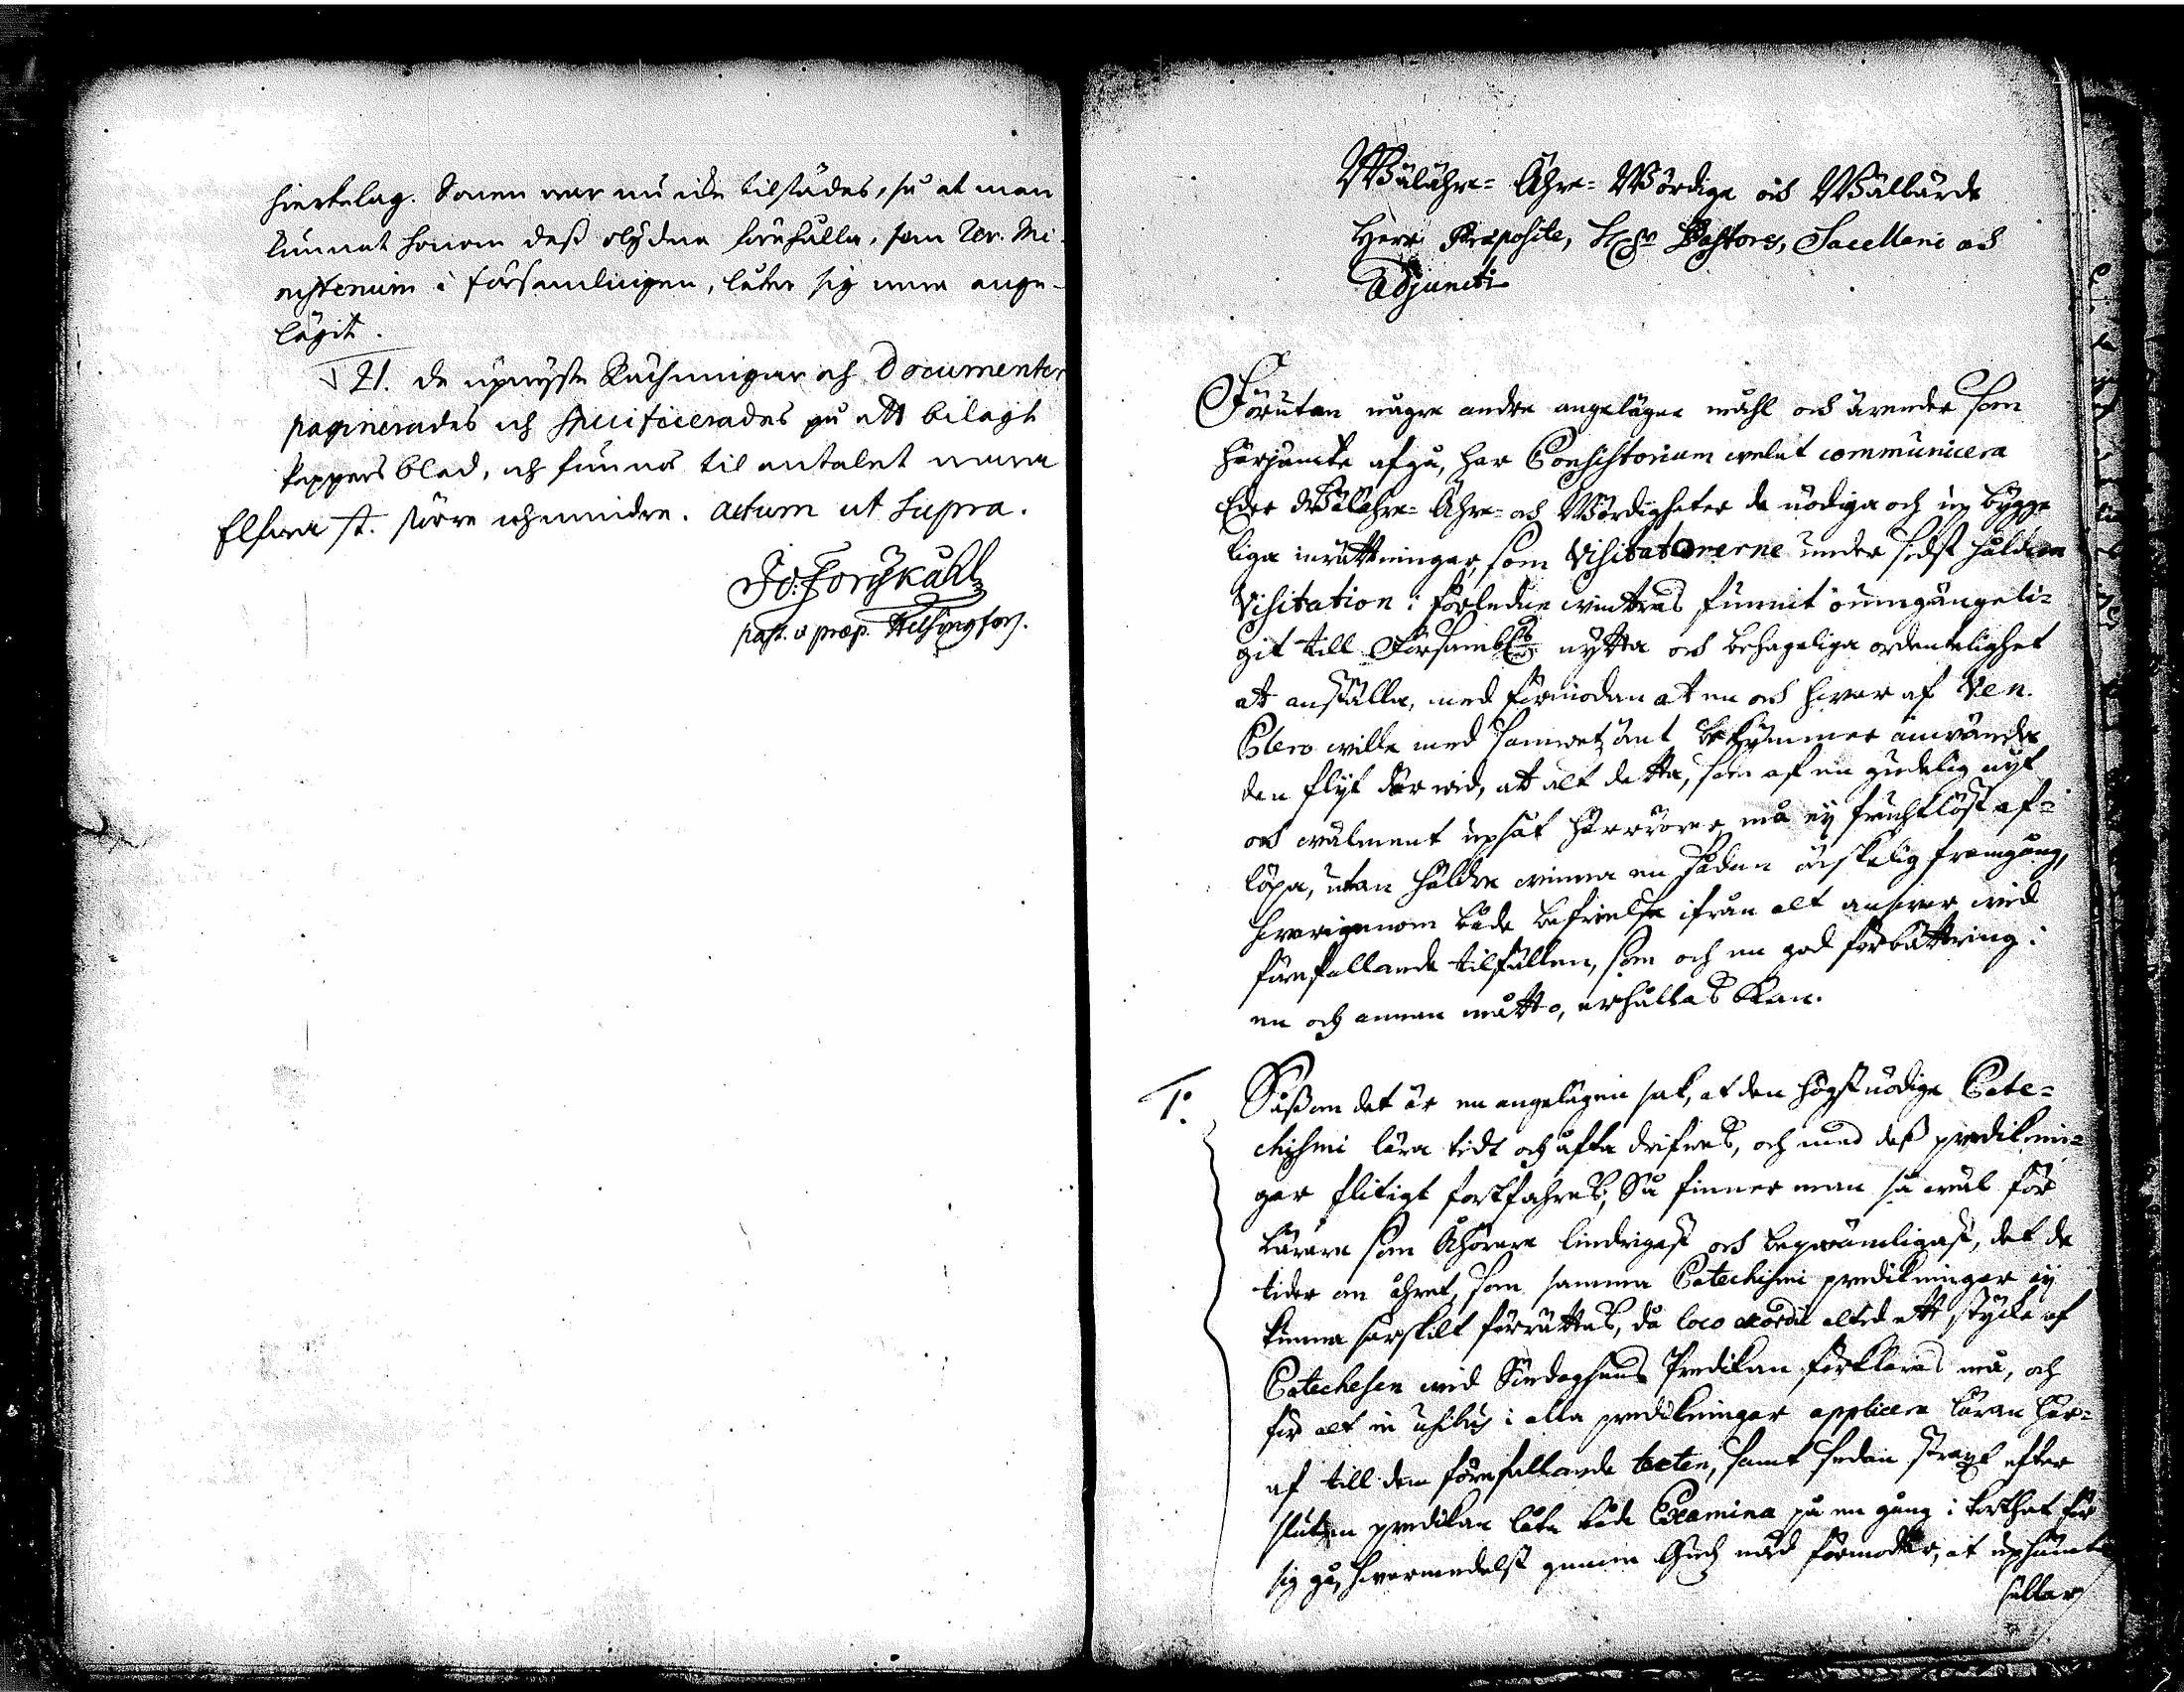 hierkelag. Sonen war nu icke tilstädes, så at man
kunnat honom dess olydna förehålla, som Rev. Mi-
nisterium i församlingen, låter sig wara ange-
lägit.
§ 21. de upwyste Räkningar och Documenter
paginerades och specificerades på ett bilagt
Pappers blad, och funnos til antalet wara
Elfwa st. större och mindre. actum ut supra.
Jo: Forsskåhl
past. & præp. Helsingfors.
Wälähre- Ähre- Wördige och Wällärde
Herr Præposite, Pastores, Sacellani och
Adjuncti
Förutan någre andre angelägne måhl och ärender som
härjemte afgå, har Consistorium welat communicera
Eder Wälähre- Ähre- och Wördigheter de nödiga och upbygge
liga inrättningar, som Visitatorerne under sidst håldne
Visitation i förledne wintras funnit oumgängeli-
git till Försambl:s nytta och behageliga ordentelighet
at anställa, med förmodan at en och hwar af Ven.
Clero wille med samwetzömt bekymmer använda
den flijt der wid, att alt detta, som af en gudelig nijt
och wälment upsåt härrörer, må ej fruchtlöst af-
löpa, utan häldre winna en sådan önskelig framgång,
hwarigenom både befrielse ifrån alt answar wid
förefallande tilfällen, som och en god förbättring i
en och annan måtto, erhållas kan.
1. Såsom det är en angelägen sak, at den högstnödige Cate-
chismi lära tidt och ofta drifwes, och med dess predikni-
gar flitigt fortfahres; Så finner man så wäl för
Lärare som Åhörare lindrigast och beqwämligast, det de
tider om åhret, som samma Catechismi predikningar ej
kunna särskilt förrättas, då loco exordii altid ett stycke af
Catechesen wid Söndagsens Predikan förklaras må, och
för alt in usibus i alla predikningar applicera läran här-
af till den förefallande texten, samt sedan straxt efter
sluten predikan låta både Examina på en gång i korthet för
sig gå, hwarmedelst genom Guds nåd förmodas, at